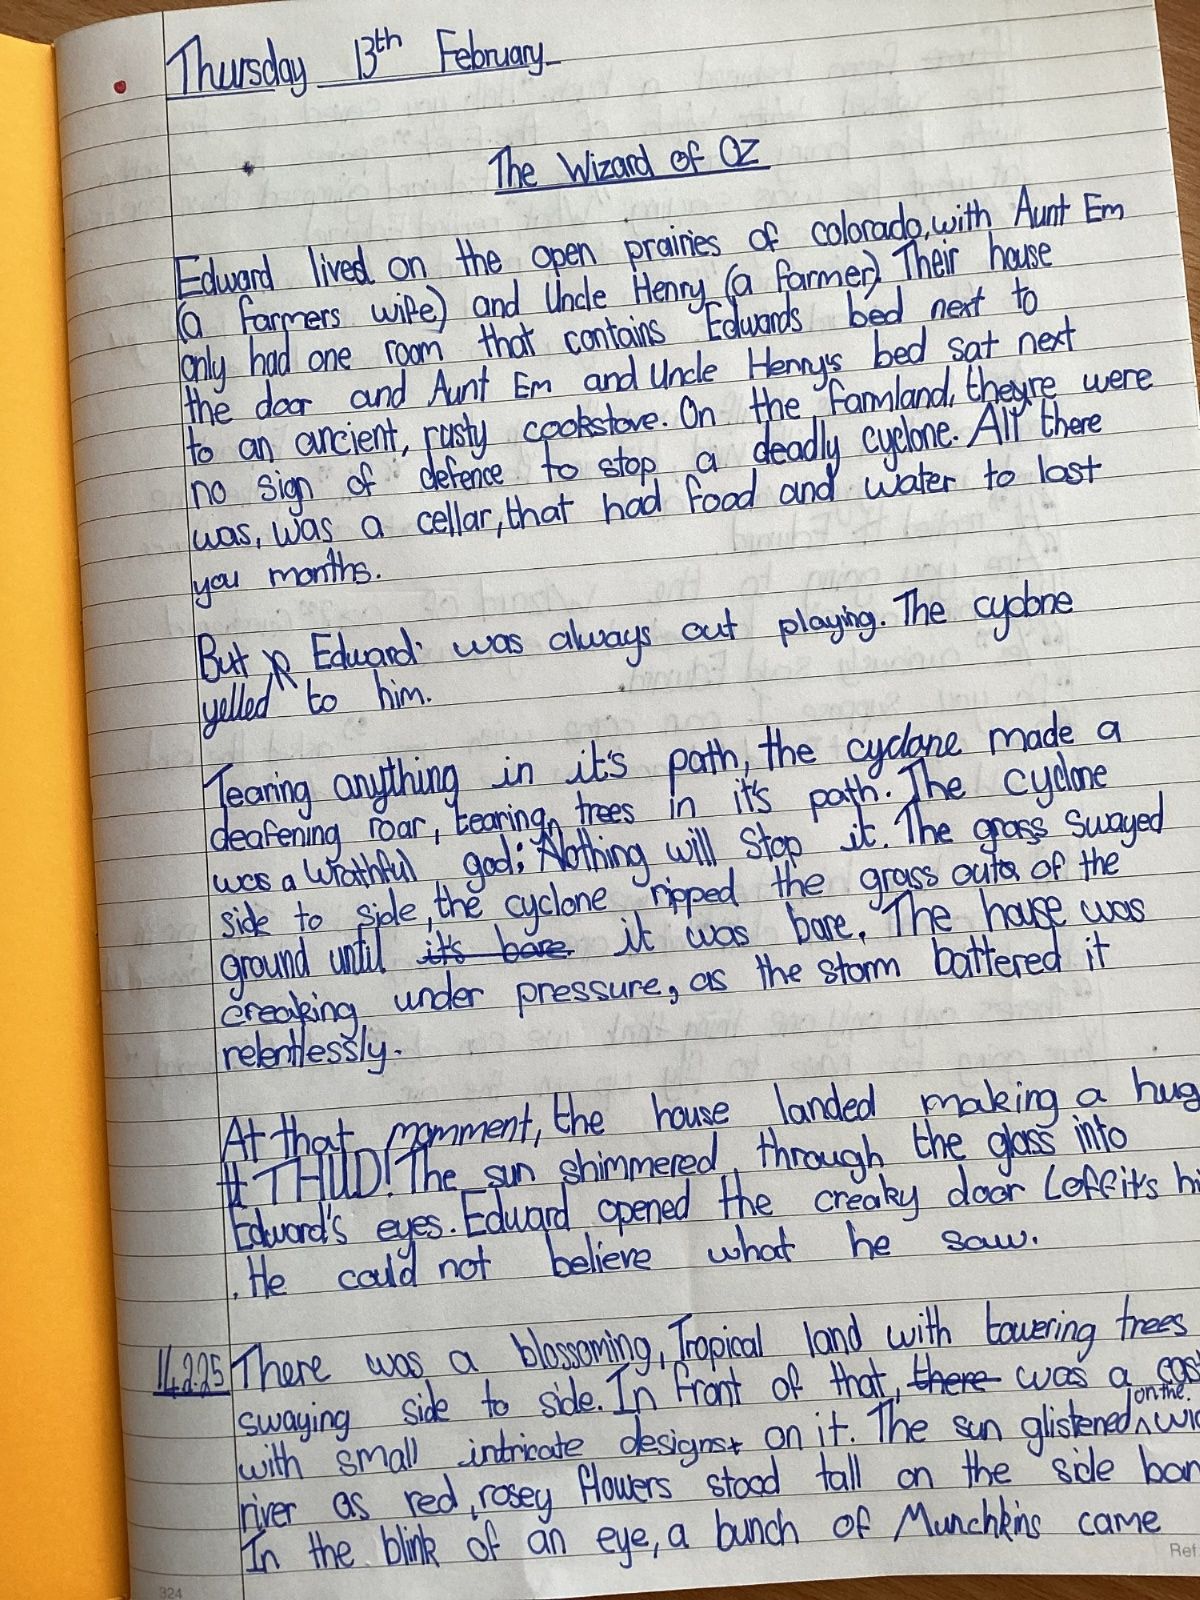 Thursday 13th February
The Wizard of Oz
Edward lived on the open prairies of colorado, with Aunt Em
(a farmers wife) and Uncle Henry (a farmer). Their house
only had one room that contains Edwards bed next to
the door and Aunt Em and Uncle Henry's bed sat next
to an ancient, rusty cookstove. On the farmland, theyre were
no sign of defence to stop a deadly cyclone. All there
was, was a cellar, that had food and water to last
you months.
But Edward was always out playing. The cyclone
yelled to him.
Tearing anything in it's path, the cyclone made a
deafening roar, tearing trees in it's path. The cyclone
was a wrathful god; Nothing will stop it. The grass swayed
side to side, the cyclone ripped the grass outa of the
ground until it's bare. it was bare. The house was
creaking under pressure, as the storm battered it
relentlessly.
At that momment, the house landed making a hug
THUD! The sun shimmered through the glass into
Edward's eyes. Edward opened the creaky door (off it's hi
. He could not believe what he saw.
14.2.25 There was a blossoming, Tropical land with towering trees
swaying side to side. In front of that, there was a
with small intricate designs on it. The sun glistened on the
river as red, rosey flowers stood tall on the side ban
In the blink of an eye, a bunch of Munchkins came
324
Ref